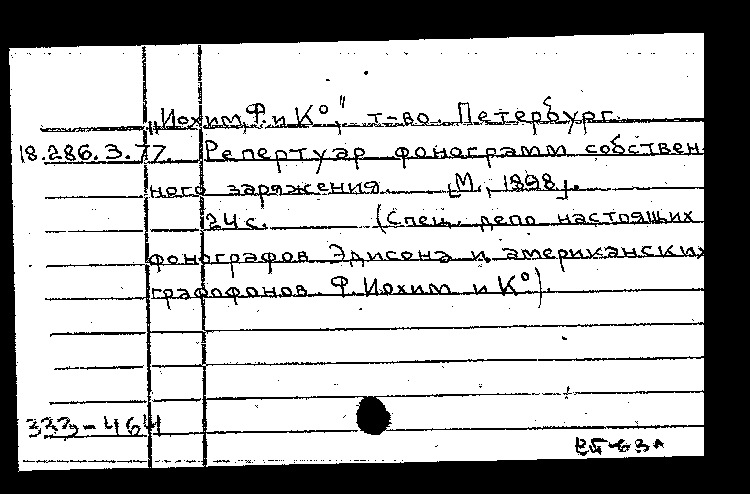 „Иохим, Ф. и К°," т-во. Петербург.
18.286.3.77. Репертуар фонограмм собствен-
ного заряжения. [М., 1898].
24 с. (Спец. депо настоящих
фонографов Эдисона и американских
графофонов Ф. Иохим и К°).
333-464